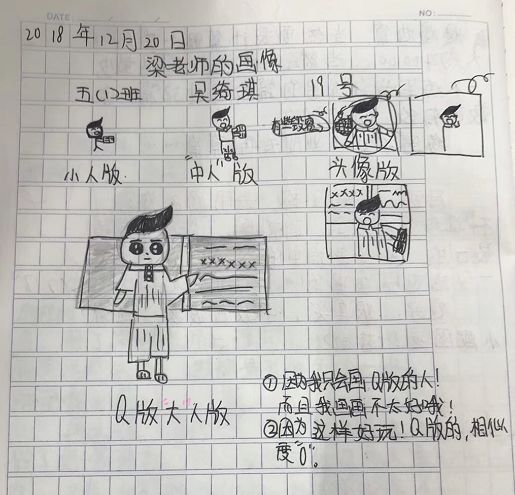 DATE:
NO:
2018年12月20日
梁老师的画像
五(1)班 吴绮琪 19号
小人版 "中人"版 头像版
××××
××××××
Q版"大"人版
①因为我只会画Q版的人!
而且我画画不太好哦!
②因为这样好玩!Q版的,相似
度"0"。